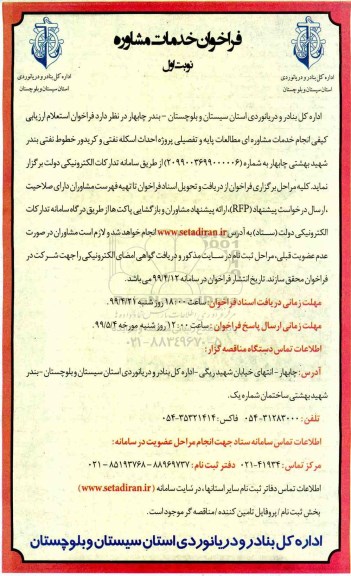 فراخوان خدمات مشاوره
نوبت اول
اداره کل بنادر و دریانوردی
استان سیستان و بلوچستان
اداره کل بنادر و دریانوردی
استان سیستان و بلوچستان
اداره کل بنادر و دریانوردی استان سیستان و بلوچستان - بندر چابهار در نظر دارد فراخوان استعلام ارزیابی
کیفی انجام خدمات مشاوره ای مطالعات پایه و تفصیلی پروژه احداث اسکله نفتی و کریدور خطوط نفتی بندر
شهید بهشتی چابهار به شماره (۲۰۹۹۰۰۳۶۹۹۰۰۰۰۰۶) از طریق سامانه تدارکات الکترونیکی دولت برگزار
نماید. کلیه مراحل برگزاری فراخوان از دریافت و تحویل اسناد فراخوان تا تهیه فهرست مشاوران دارای صلاحیت
،ارسال درخواست پیشنهاد (RFP)، ارائه پیشنهاد مشاوران و بازگشایی پاکت ها از طریق درگاه سامانه تدارکات
الکترونیکی دولت (ستاد) به آدرس www.setadiran.ir انجام خواهد شد و لازم است مشاوران در صورت
عدم عضویت قبلی، مراحل ثبت نام در سایت مذکور و دریافت گواهی امضای الکترونیکی را جهت شرکت در
فراخوان محقق سازند. تاریخ انتشار فراخوان در سامانه ۹۹/۴/۱۲ می باشد.
مهلت زمانی دریافت اسناد فراخوان: ساعت ۱۸:۰۰ روز شنبه ۹۹/۴/۲۱
مهلت زمانی ارسال پاسخ فراخوان : ساعت ۱۲:۰۰ روز شنبه مورخه ۹۹/۵/۴
اطلاعات تماس دستگاه مناقصه گزار:
آدرس: چابهار - انتهای خیابان شهید ریگی - اداره کل بنادر و دریانوردی استان سیستان و بلوچستان - بندر
شهید بهشتی ساختمان شماره یک.
تلفن: ۳۱۲۸۳۰۰۰-۰۵۴ فاکس: ۳۵۳۲۱۴۱۴-۰۵۴
اطلاعات تماس سامانه ستاد جهت انجام مراحل عضویت در سامانه:
مرکز تماس: ۴۱۹۳۴-۰۲۱ دفتر ثبت نام: ۸۸۹۶۹۷۳۷ - ۸۵۱۹۳۷۶۸-۰۲۱
اطلاعات تماس دفاتر ثبت نام سایر استانها، در سایت سامانه (www.setadiran.ir)
بخش ثبت نام / پروفایل تامین کننده / مناقصه گر موجود است.
اداره کل بنادر و دریانوردی استان سیستان و بلوچستان